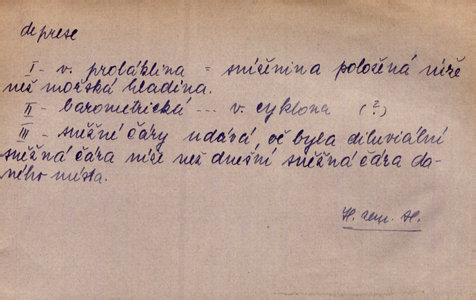 deprese
I - v. proláklina = sníženina položená níže
než mořská hladina.
II - barometrická ... v. cyklona (?)
III - sněžné čáry udává, oč byla diluviální
sněžná čára níže než dnešní sněžná čára da-
ného místa.
H. zem. H.